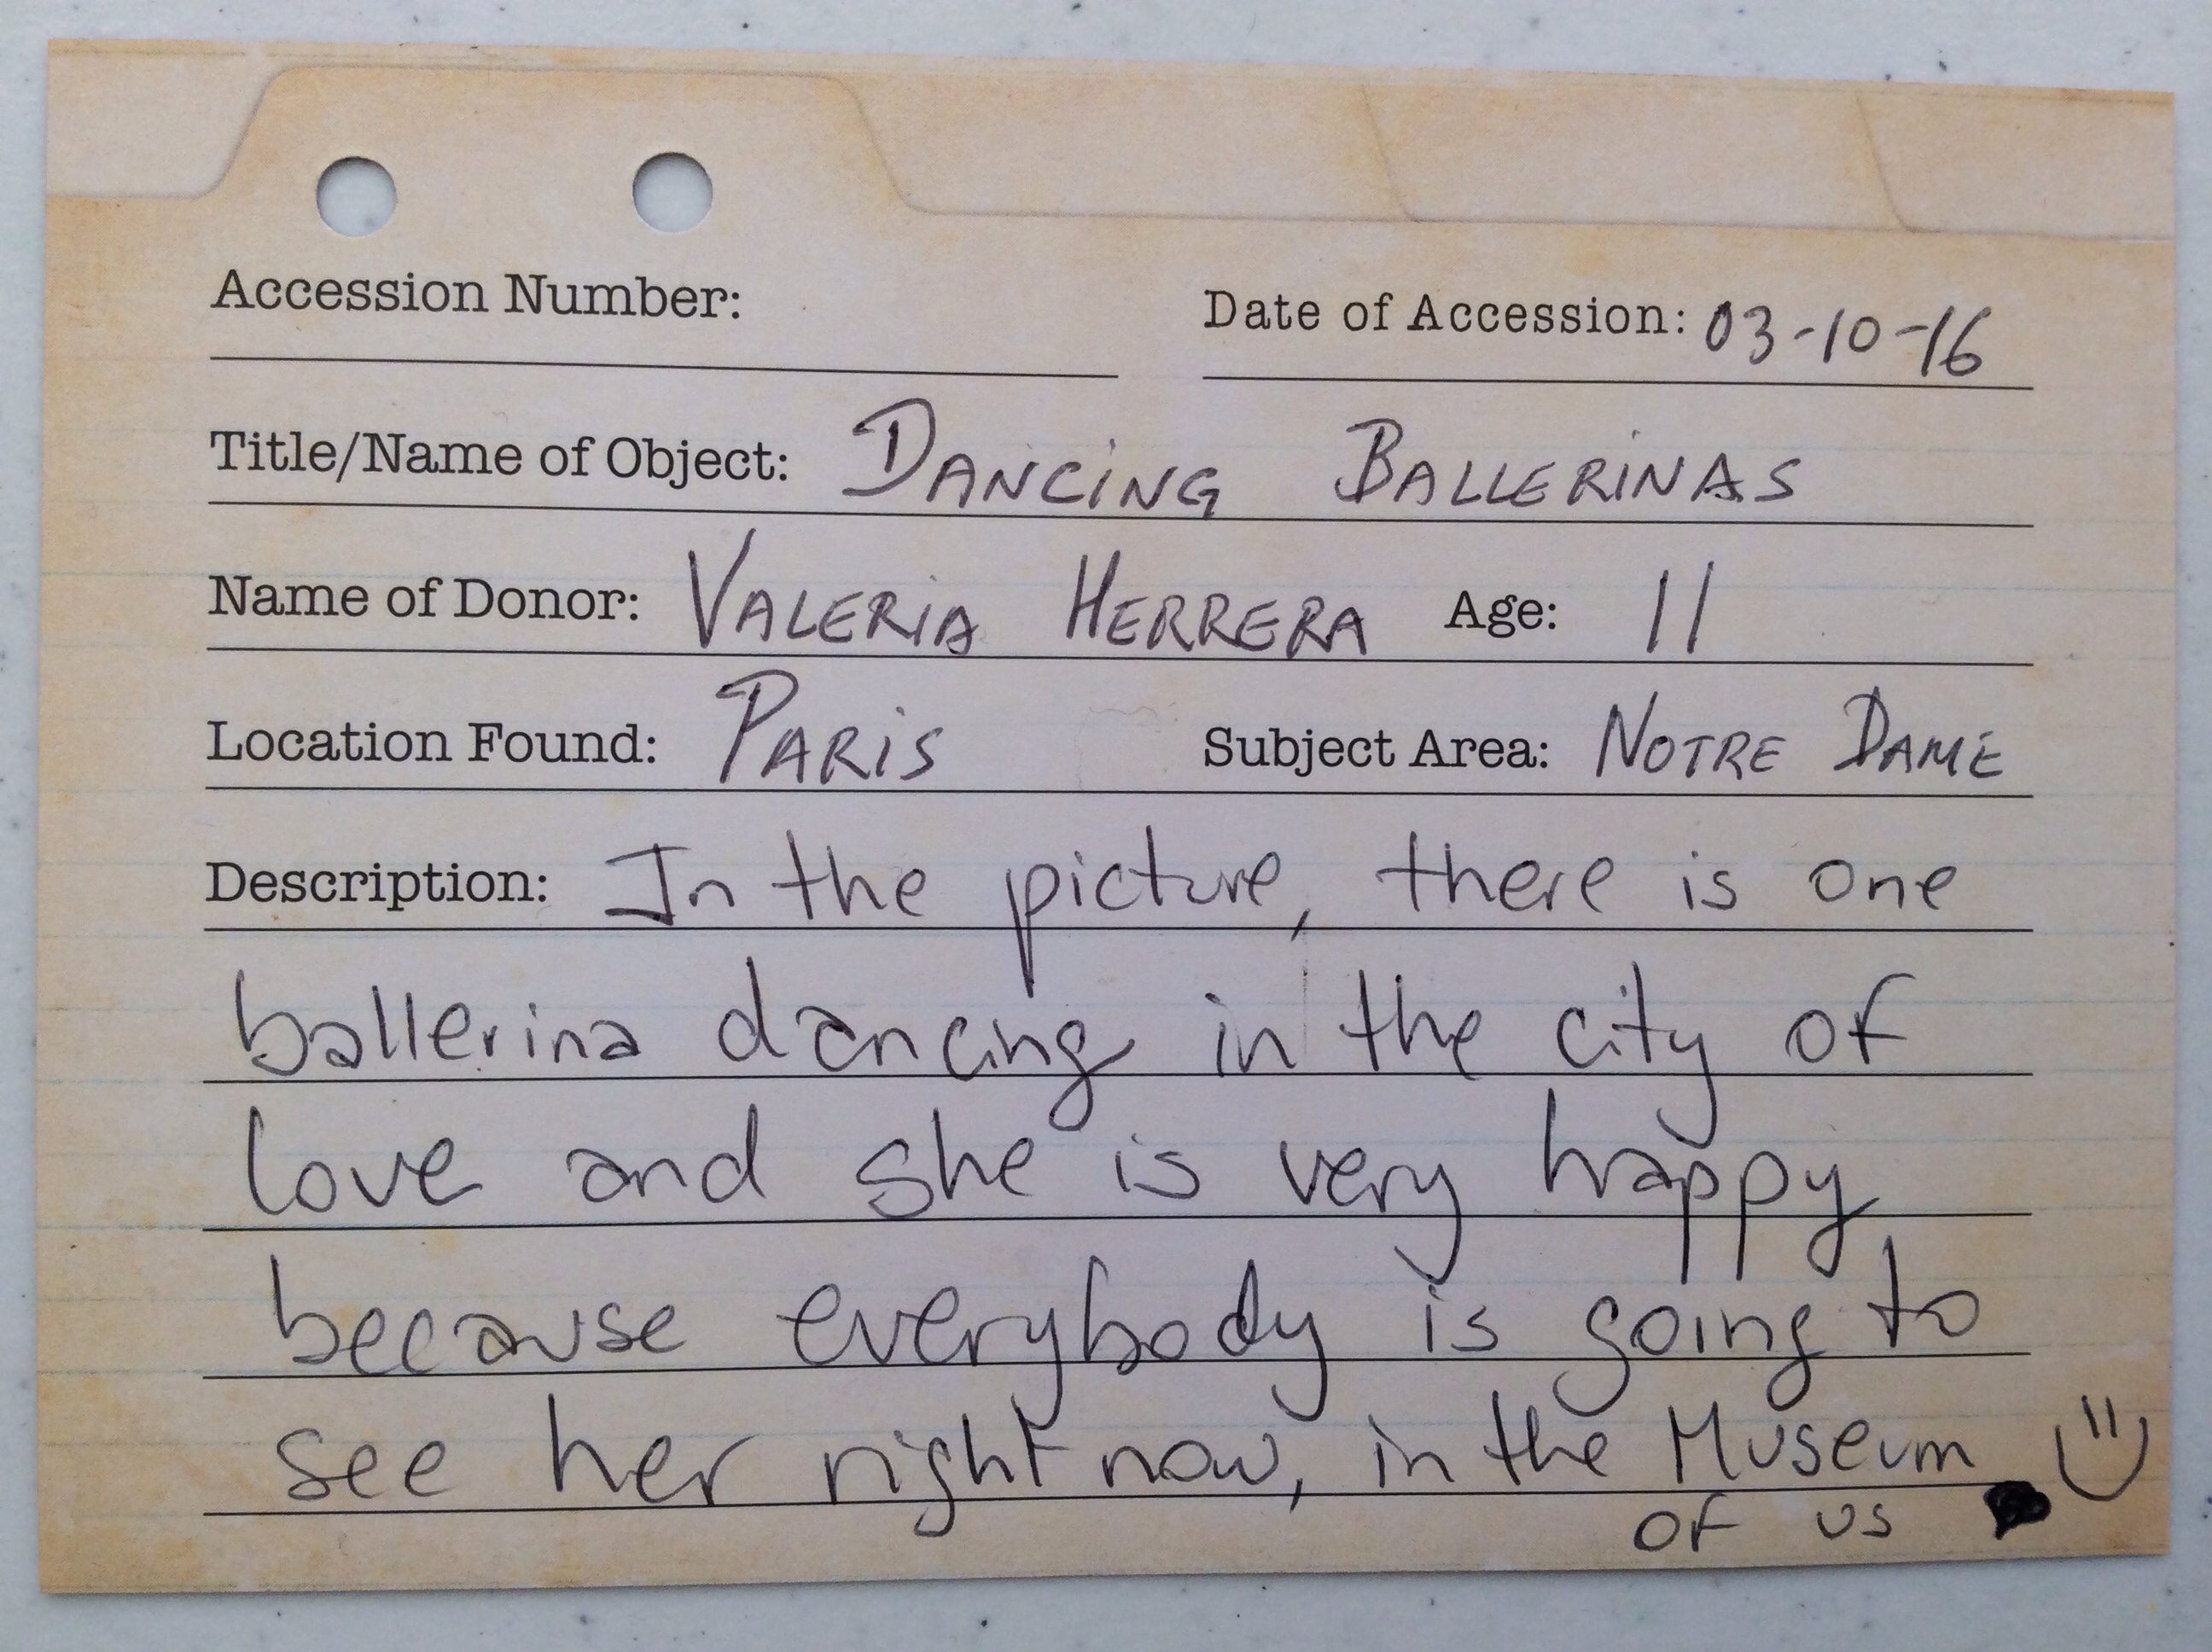 Accession Number:
Date of Accession: 03-10-16
Title/Name of Object: DANCING BALLERINAS
Name of Donor: VALERIA HERRERA Age: 11
Location Found: PARIS Subject Area: NOTRE DAME
Description: In the picture, there is one
ballerina dancing in the city of
love and she is very happy
because everybody is going to
see her right now, in the Museum
of us